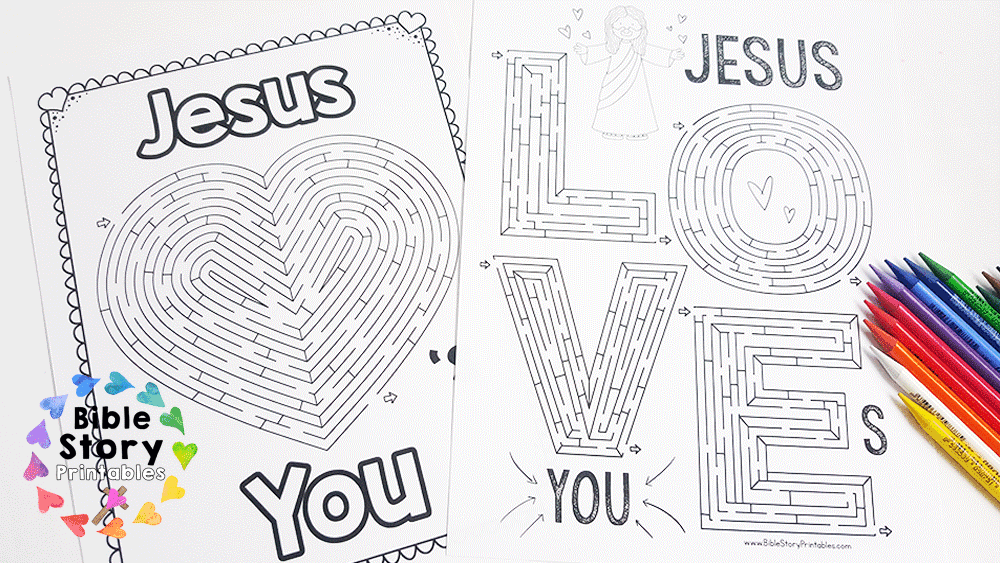 Jesus
You
JESUS
LO
VE
s
YOU
www.BibleStoryPrintables.com
Bible
Story
Printables